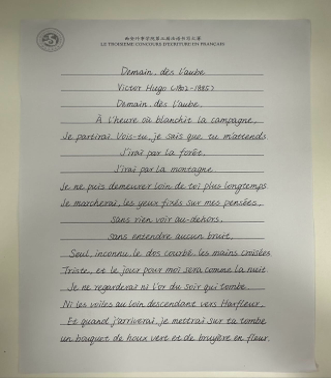 LE TROISIEME CONCOURS D'ECRITURE EN FRANCAIS
Demain, dès l'aube
Victor Hugo (1802-1885)
Demain, dès l'aube,
À l'heure où blanchit la campagne,
Je partirai. Vois-tu, je sais que tu m'attends
J'irai par la forêt,
J'irai par la montagne
Je ne puis demeurer loin de toi plus longtemps.
Je marcherai, les yeux fixés sur mes pensées,
sans rien voir au-dehors,
sans entendre aucun bruit,
Seul, inconnu, le dos courbé, les mains croisées
Triste, et le jour pour moi sera comme la nuit.
Je ne regarderai ni l'or du soir qui tombe
Ni les voiles au loin descendant vers Harfleur,
Et quand j'arriverai, je mettrai sur ta tombe
un bouquet de houx vert et de bruyère en fleur.